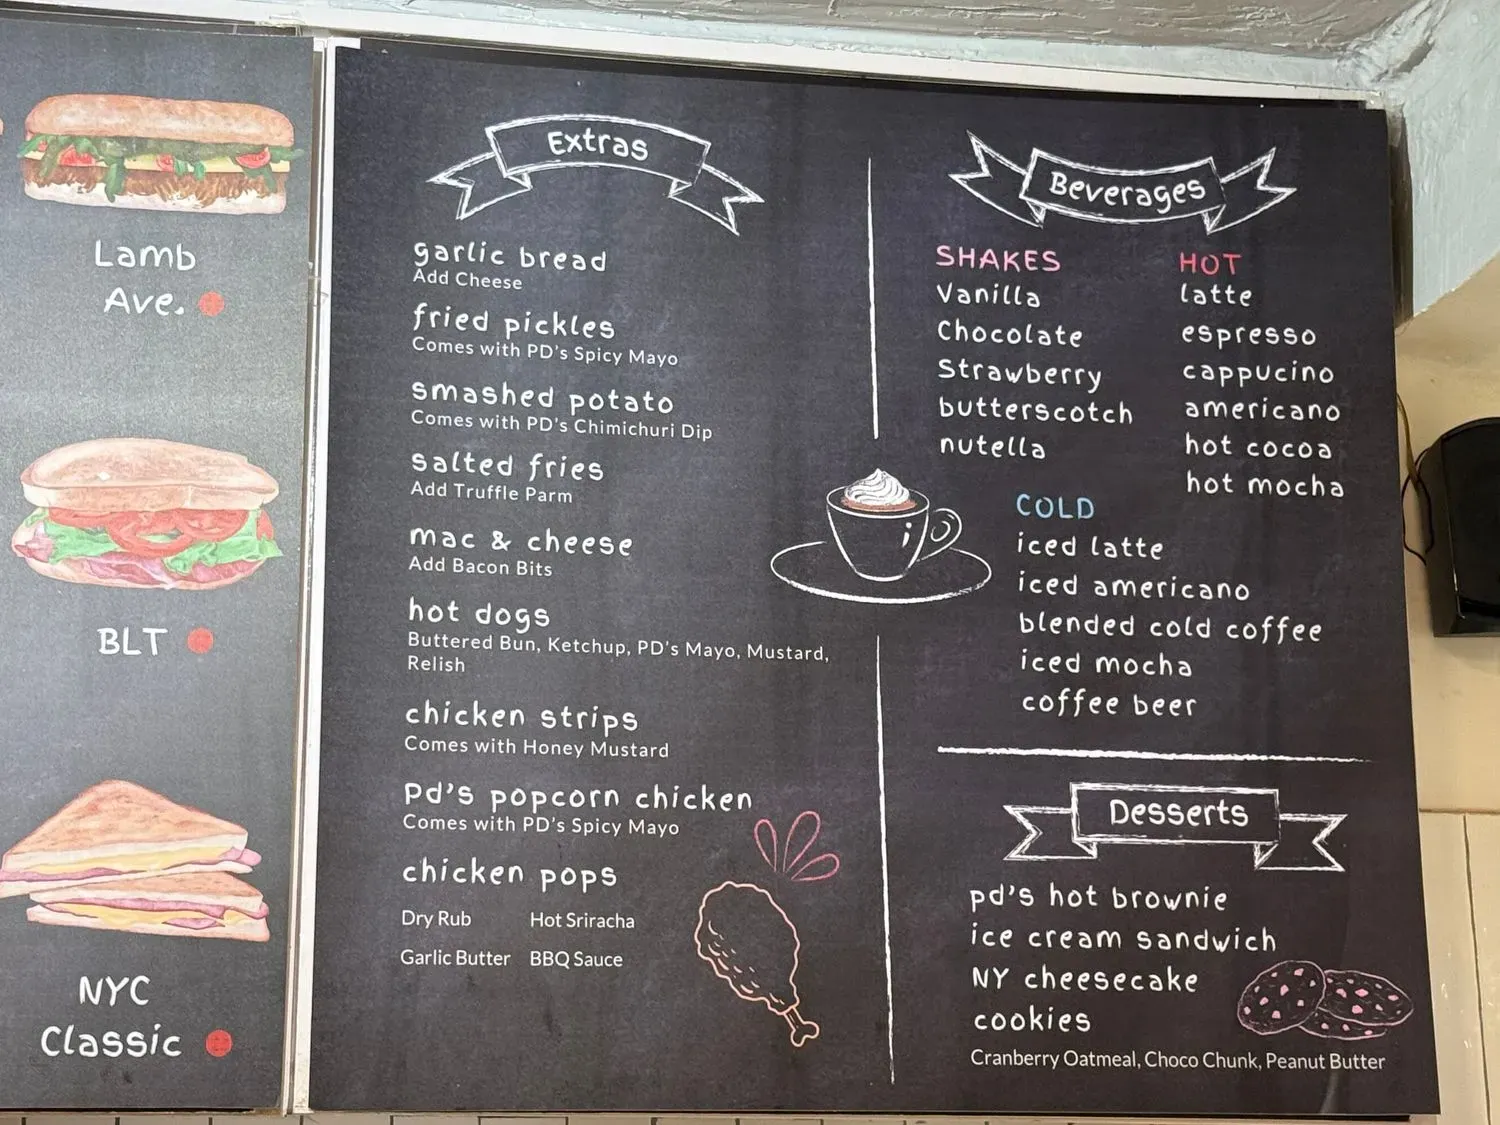 Lamb
Ave.
BLT
NYC
Classic
Extras
garlic bread
Add Cheese
fried pickles
Comes with PD's Spicy Mayo
smashed potato
Comes with PD's Chimichuri Dip
salted fries
Add Truffle Parm
mac & cheese
Add Bacon Bits
hot dogs
Buttered Bun, Ketchup, PD's Mayo, Mustard,
Relish
chicken strips
Comes with Honey Mustard
Pd's popcorn chicken
Comes with PD's Spicy Mayo
chicken pops
Dry Rub Hot Sriracha
Garlic Butter BBQ Sauce
Beverages
SHAKES
Vanilla
Chocolate
Strawberry
butterscotch
nutella
HOT
latte
espresso
cappucino
americano
hot cocoa
hot mocha
COLD
iced latte
iced americano
blended cold coffee
iced mocha
coffee beer
Desserts
pd's hot brownie
ice cream sandwich
NY cheesecake
cookies
Cranberry Oatmeal, Choco Chunk, Peanut Butter